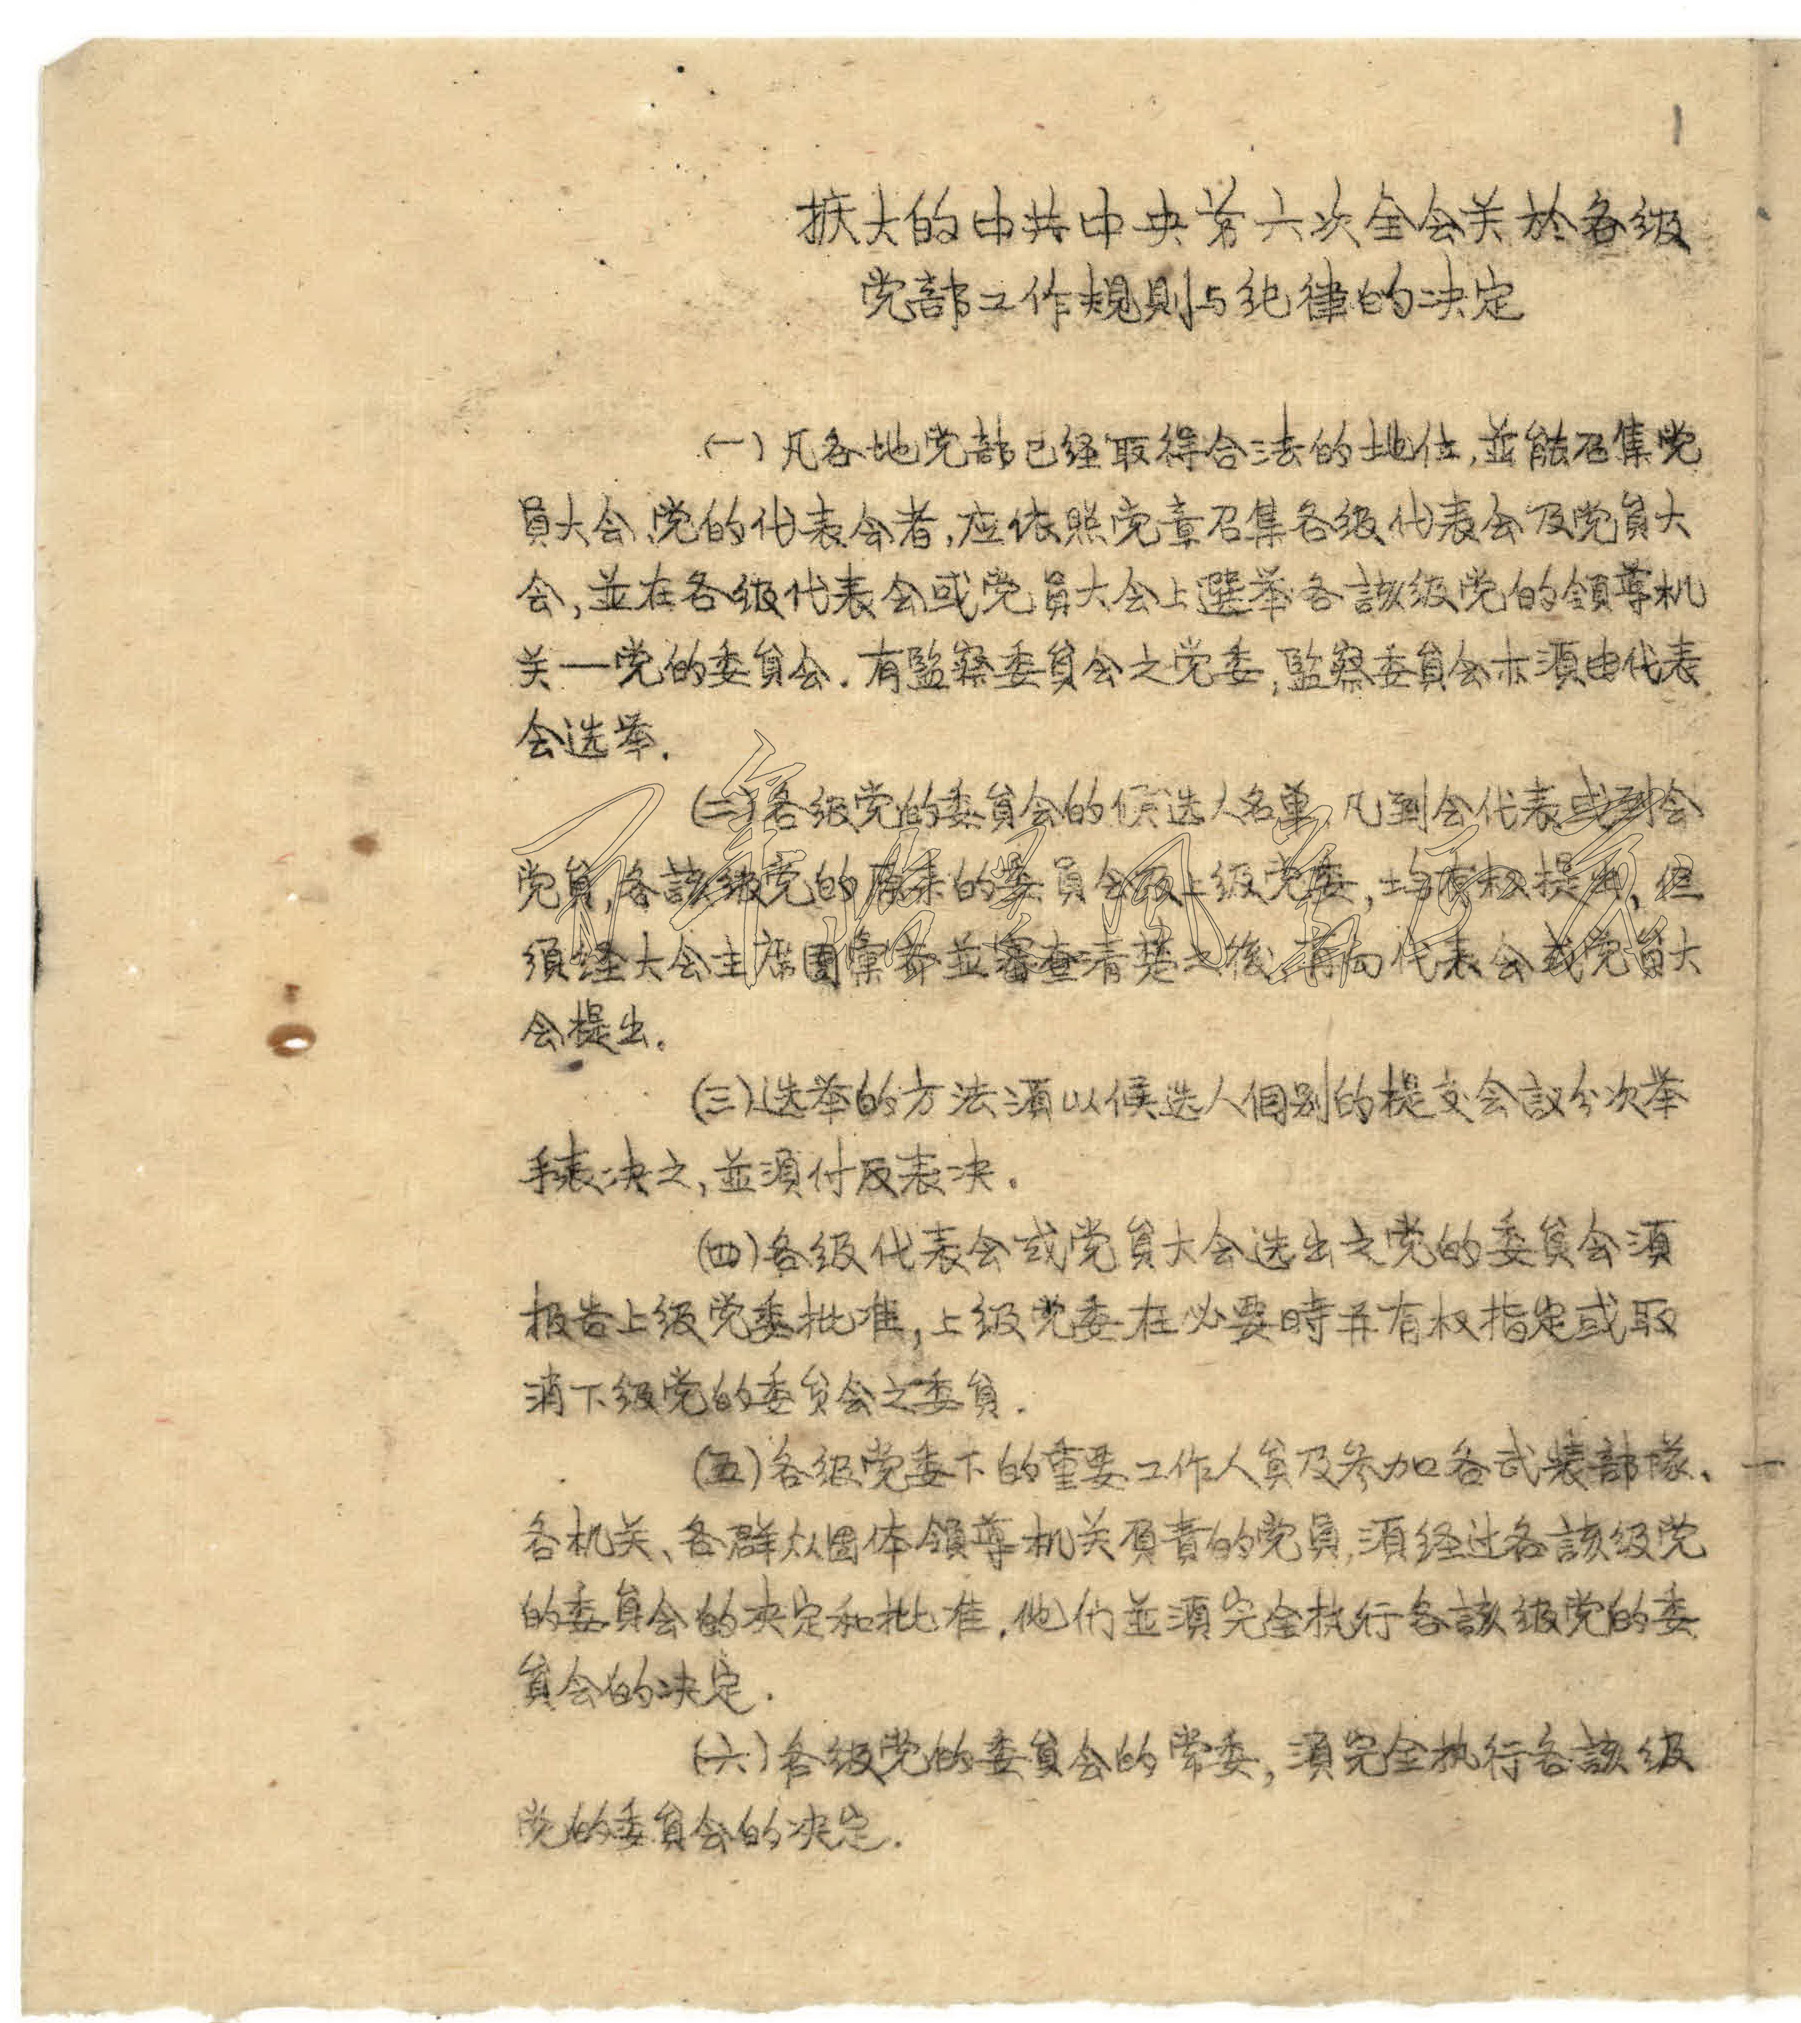 1
扩大的中共中央第六次全会关於各级
党部工作规则与纪律的决定
(一)凡各地党部已经取得合法的地位,並能召集党
員大会、党的代表会者,应依照党章召集各级代表会及党員大
会,並在各级代表会或党員大会上選举各該级党的領导机
关—党的委員会.有監察委員会之党委,監察委員会亦須由代表
会选举.
(二)各级党的委員会的候选人名单,凡到会代表或到会
党員,各該级党的原来的委員会及上级党委,均有权提出,但
須经大会主席團彙齐並審查清楚之後,再向代表会或党員大
会提出.
(三)选举的方法須以候选人個别的提交会議分次举
手表决之,並須付反表决.
(四)各级代表会或党員大会选出之党的委員会須
报告上级党委批准,上级党委在必要時並有权指定或取
消下级党的委員会之委員.
(五)各级党委下的重要工作人員及参加各武装部隊、
各机关、各群众团体領导机关負責的党員,須经过各該级党
的委員会的决定和批准.他们並須完全执行各該级党的委
員会的决定.
(六)各级党的委員会的常委,須完全执行各該级
党的委員会的决定.